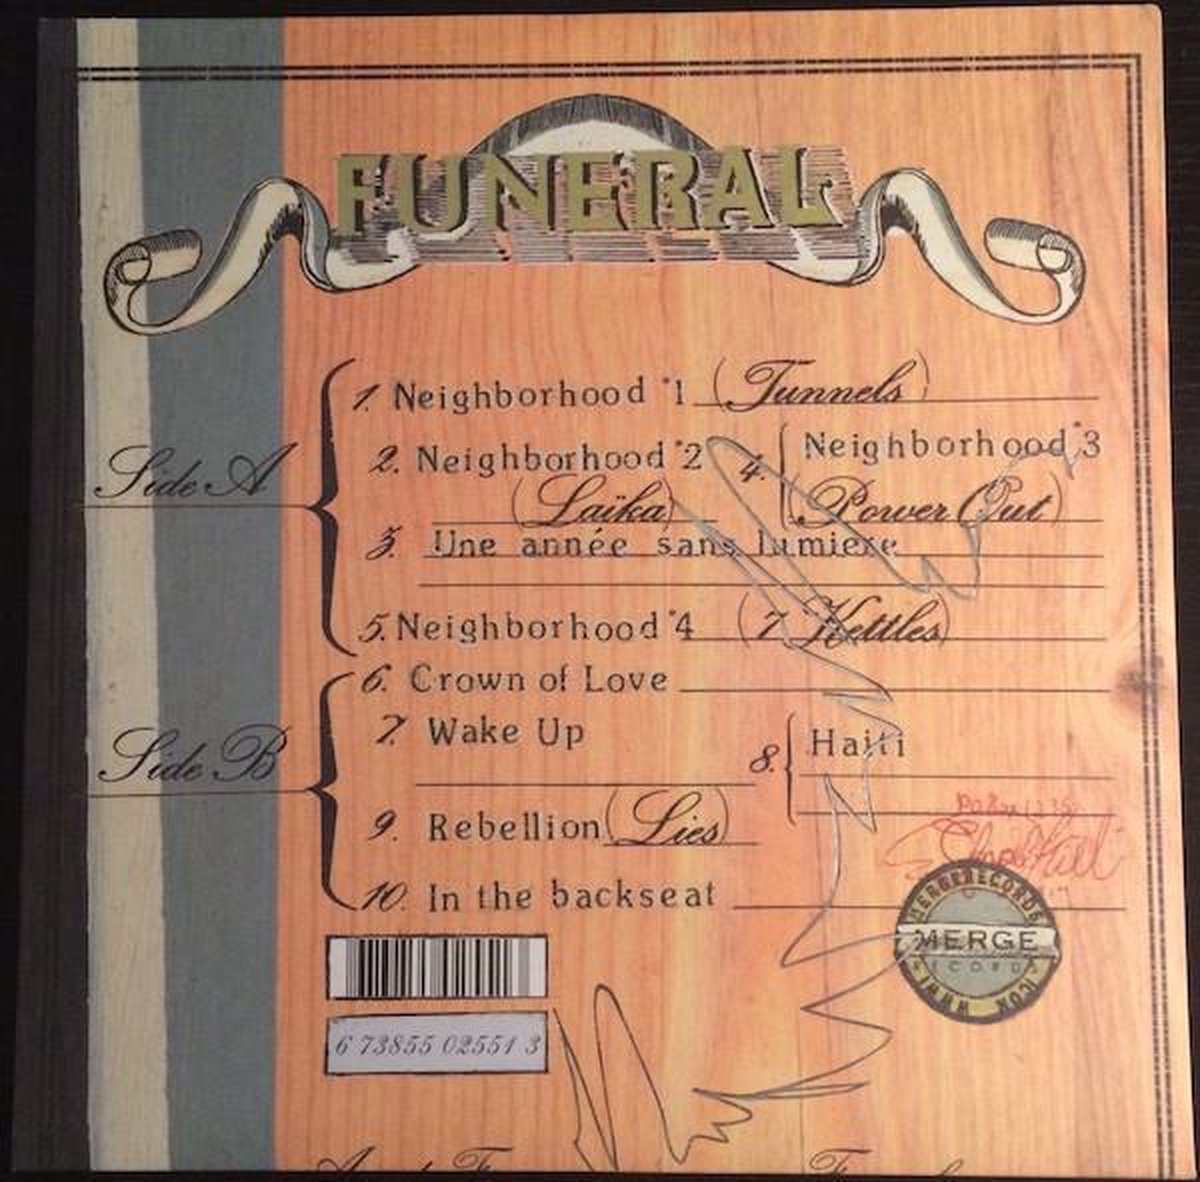 FUNERAL
Side A
1. Neighborhood #1 (Tunnels)
2. Neighborhood #2
(Laïka)
3. Une année sans lumiere
4. Neighborhood #3
(Power Out)
5. Neighborhood #4 (7 Kettles)
Side B
6. Crown of Love
7. Wake Up
8. Haiti
9. Rebellion (Lies)
10. In the backseat
6 73855 02551 3
MERGE RECORDS
MERGE
RECORDS